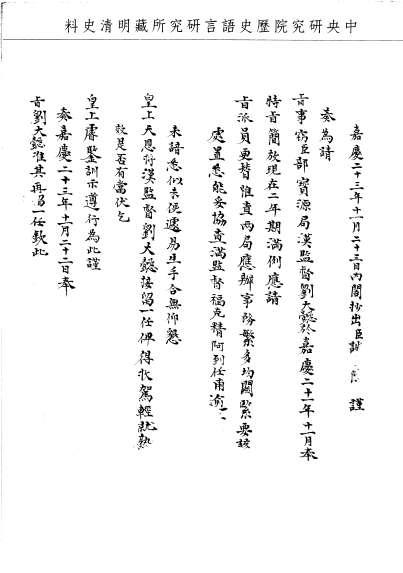 中央研究院歷史語言研究所藏明清史料
嘉慶二十三年十一月二十三日內閣抄出臣 謹
奏為請
旨事竊臣部寶源局漢監督劉大懿於嘉慶二十一年十一月奉
特旨簡放現在二年期滿例應請
旨派員更替惟查兩局應辦事務繁多均關緊要該
處置悉能妥協查滿監督福克精阿到任甫逾
未諳悉似未便遽易生手合無仰懇
皇上天恩將漢監督劉大懿接留一任俾得狀駕輕就熟
效是否有當伏乞
皇上睿鑒訓示遵行為此謹
奏嘉慶二十三年十一月二十二日奉
旨劉大懿准其再留一任欽此